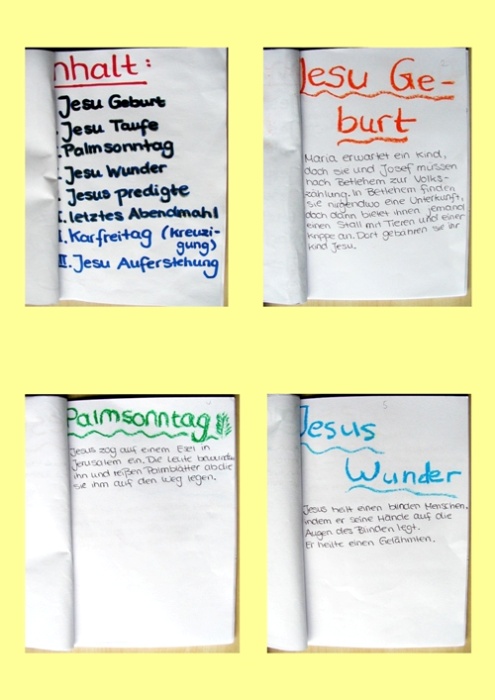 nhalt:
Jesu Geburt
Jesu Taufe
Palmsonntag
Jesu Wunder
Jesus predigte
letztes Abendmahl
I. Karfreitag (Kreuzi-
gung)
II. Jesu Auferstehung
Jesu Ge-
burt
Maria erwartet ein Kind,
doch sie und Josef müssen
nach Betlehem zur Volks-
zählung. In Betlehem finden
sie nirgendwo eine Unterkunft,
doch dann bietet ihnen jemand
einen Stall mit Tieren und einer
Krippe an. Dort gebähren sie ihr
Kind Jesu.
Palmsonntag
Jesus zog auf einem Esel in
Jerusalem ein. Die Leute
ihn und reißen Palmblätter ab die
sie ihm auf den Weg legen.
5
Jesus
Wunder
Jesus heilt einen blinden Menschen,
indem er seine Hände auf die
Augen des Blinden legt.
Er heilte einen Gelähmten.